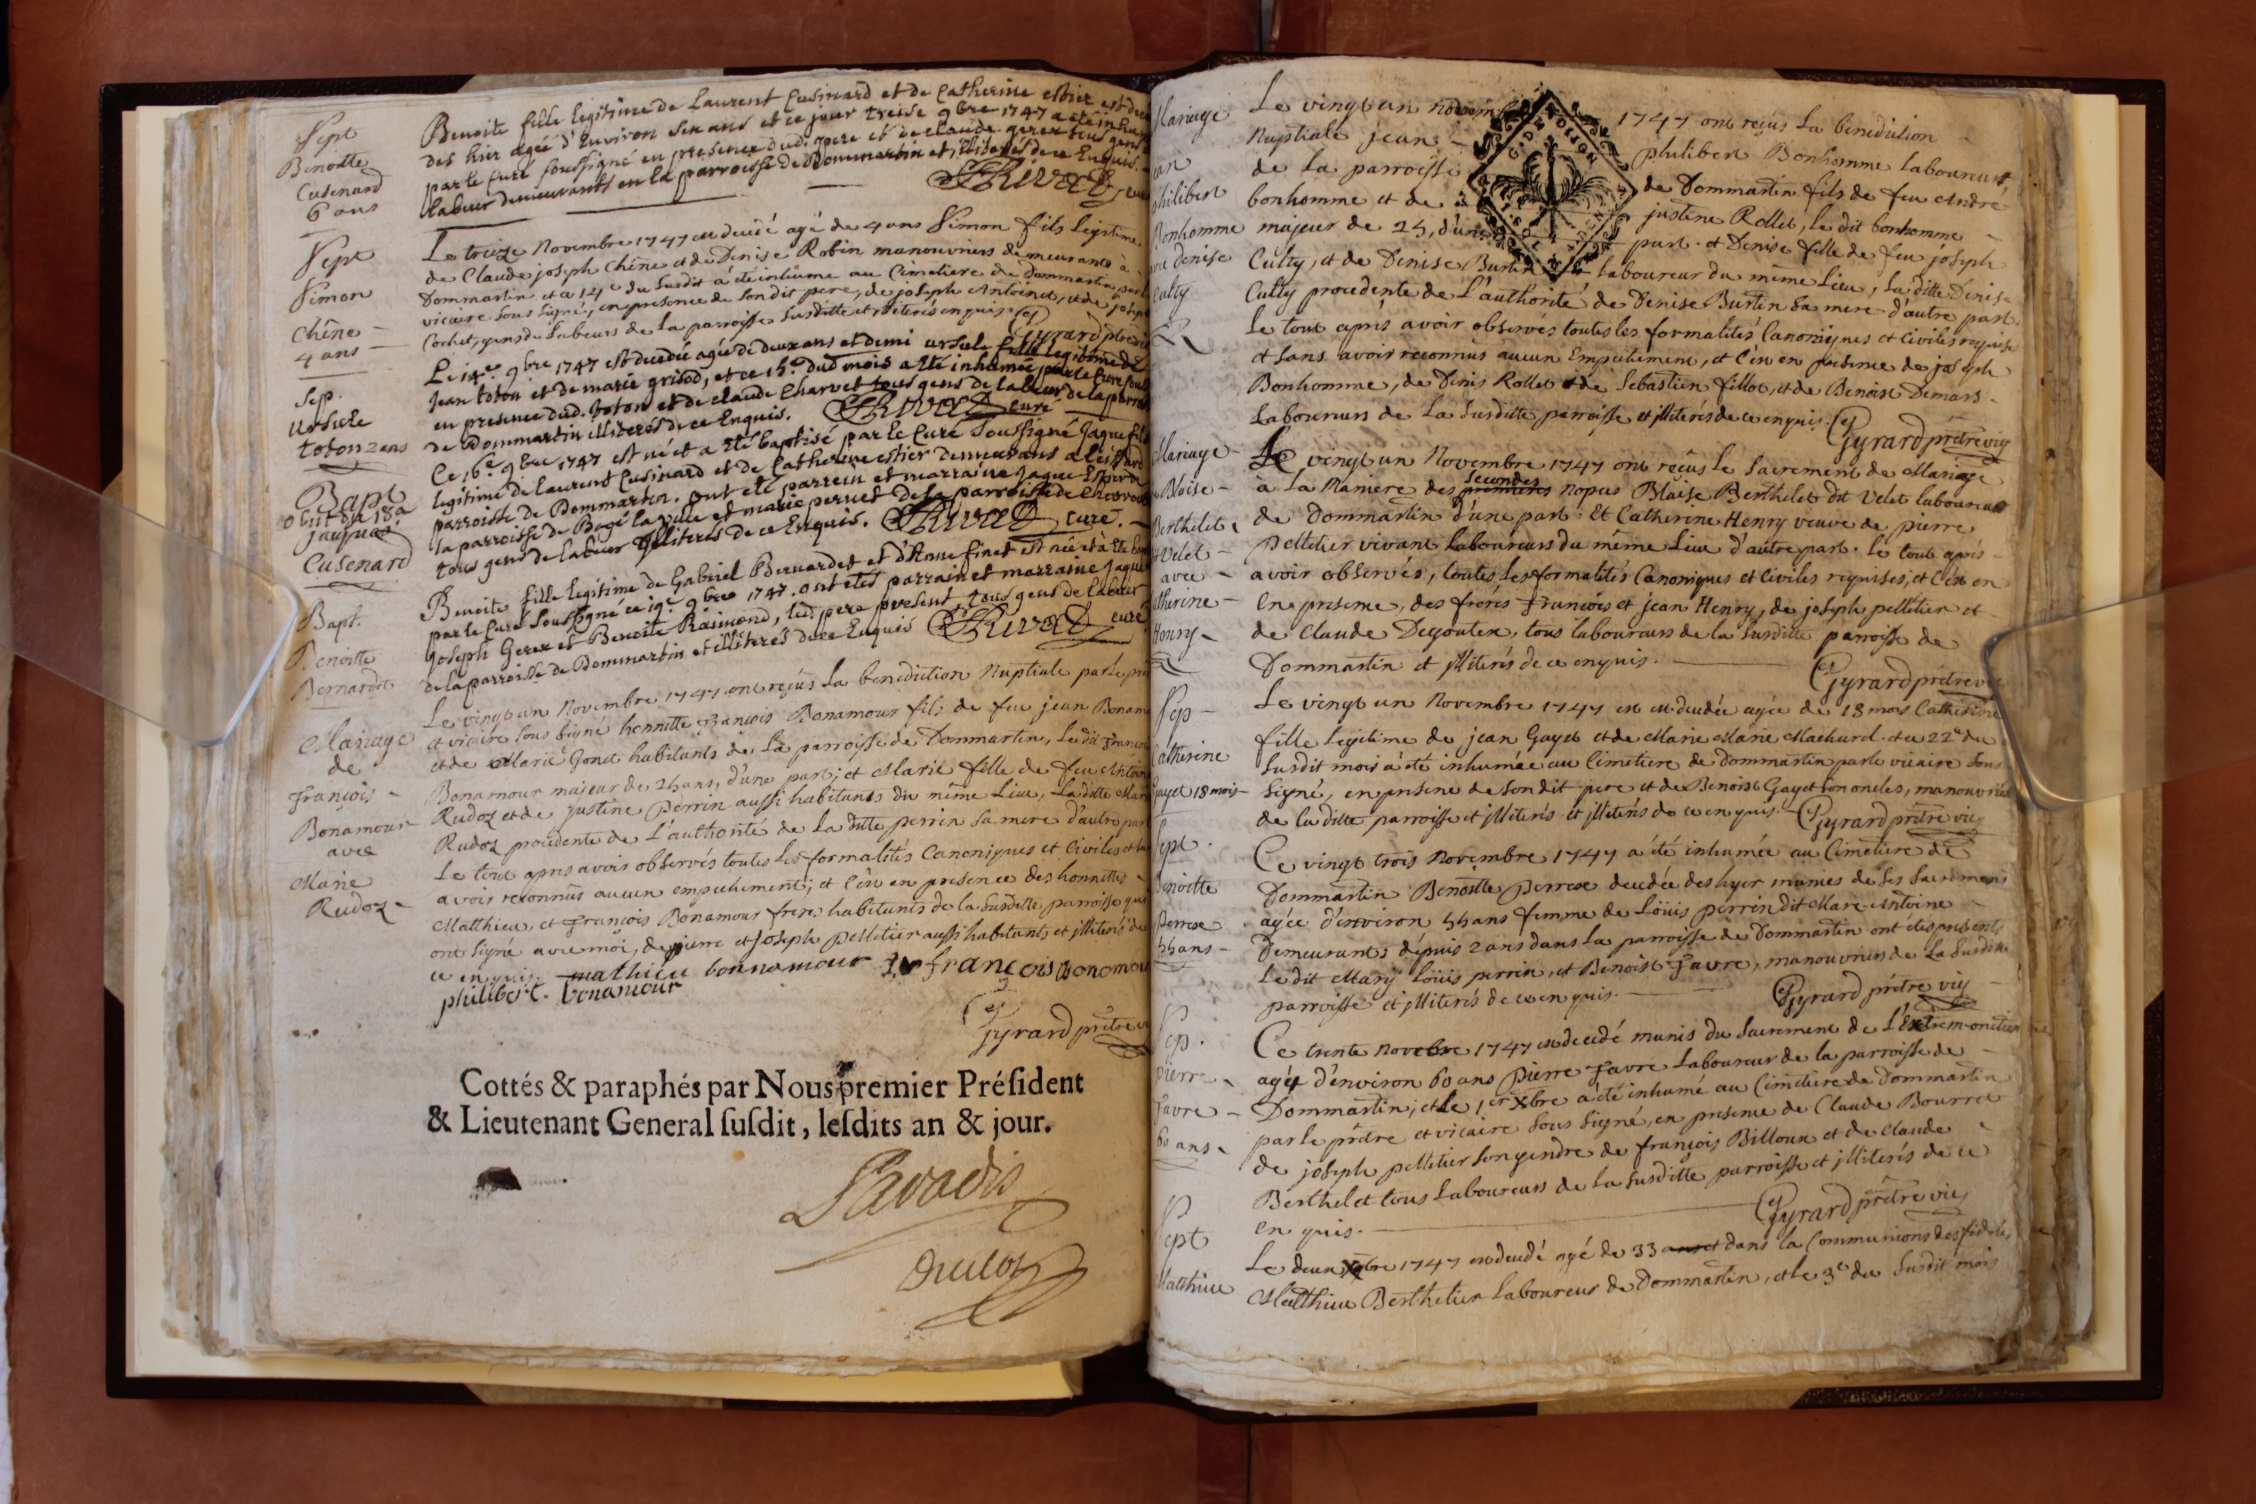 Sept
Benoitte
Cusenard
6 ans
Benoite fille legitime de Laurent Cusinard et de Catherine estier est
des hier agée d'Environ Six ans et ce jour treise 9bre 1747 a eté
par le Curé soussigné en presence dud. pere et de Claude gerex tous gens
labeur demeurants en la parroisse de Dommartin et illiteres de ce Enquis.
Sept
Simon
Chêne
4 ans
Le treize Novembre 1747 est decedé agé de 4 ans Simon fils legitime
de Claude joseph Chêne et de Denise Robin manouvriers demeurants à
Dommartin et ce 14e du susdit à été inhumé au Cimetiere de dommartin
vicaire sous signé, en presence de son dit pere, de joseph Antoinet, et de
Cochet, gens de labeurs de la parroisse susditte et illiterés enquis
Gyrard ptre
Sep.
ursule
toton 2 ans
Le 14e 9bre 1747 est decedée agée de deux ans et demi ursule fille legitime de
jean toton et de marie grisod, et ce 15e dud mois a eté inhumée par le Curé
en presence dud. toton et de claude Charvet tous gens de labeur de la
de Dommartin illiteres de ce Enquis.
curé
Bapt
obiit
jacques
Cusenard
Ce 16e 9bre 1747 est né et a eté baptisé par le Curé Soussigné jaque fils
legitime de Laurent Cusinard et de Catherine estier demeurans a
parroisse de Dommartin. ont eté parrein et marraine jaque
la parroisse de Bagé la ville et marie pernet de la parroisse de
tous gens de labeur illiteres de ce Enquis.
curé.
Bapt.
Benoitte
Bernardet
Benoite fille legitime de Gabriel Bernardet et d'Anne finet est née et a eté
par le Curé Soussigné ce 19e 9bre 1747. ont etés parrain et marraine
joseph Gerex et Benoite Raimond, led. pere present, tous gens de labeur
de la parroisse de Dommartin et illiteres de ce Enquis
curé
Mariage
de
François
Bonamour
avec
Marie
Rudoz
Le vingt un Novembre 1747 ont reçus la benediction Nuptiale par le
et vicaire sous signé honnette François Bonamour fils de feu jean
et de Marie Gonet habitants de la parroisse de Dommartin, le dit
Bonamour majeur de 25 ans, d'une part; et Marie fille de feu
Rudoz et de justine perrin aussi habitants du même lieu, la ditte
Rudoz procedente de l'authorité de la ditte perrin sa mere d'autre part
Le tout apres avoir observés toutes les formalités Canoniques et Civiles
avoir reconnûs aucun empechement; et c'en en presence des honnettes
Matthieu et François Bonamour freres habitants de la susditte parroisse qui
ont signé avec moi, de pierre et joseph pelletier aussi habitants et illiterés de
ce enquis. mathieu bonnamour françois
philibert. bonamour
Gyrard prêtre
Cottés & paraphés par Nous premier Préſident
& Lieutenant General ſuſdit, leſdits an & jour.
Mariage
philibert
Bonhomme
denise
Cutty
Le vingt un 1747 ont reçus La benediction
Nuptiale jean philibert Bonhomme laboureur
de la parroisse de Dommartin fils de feu André
bonhomme et de justine Rollet, le dit bonhomme
majeur de 25, d'une part. et Denise fille de feu joseph
Cutty, et de Denise Burtin laboureur du même lieu, la ditte Denise
Cutty procedente de l'authorité de Denise Burtin sa mere d'autre part.
Le tout aprés avoir observés toutes les formalités Canoniques et Civiles requises
et sans avoir reconnus aucun Empechement, et c'en en presence de joseph
Bonhomme, de Denis Rollet et de Sebastien fillot, et de Benoist Demars
Laboureurs de La susditte parroisse et illiterés de ce enquis.
Gyrard prêtre vic
Mariage
Bloise
Berthelet
Velet
avec
Henry
Le vingt un Novembre 1747 ont reçus le Sacrement de Mariage
à la Maniere des premieres secondes nopces Blaise Berthelet dit Velet laboureur
de Dommartin d'une part: Et Catherine Henry veuve de pierre
pelletier vivant laboureurs du même Lieu d'autre part. Le tout aprés
avoir observés, toutes les formalités Canoniques et Civiles requises; et c'en en
en presence, des freres François et jean Henry, de joseph pelletier et
de Claude Degouten, tous laboureurs de la susditte parroisse de
Dommartin et illiterés de ce enquis.
Gyrard prêtre
Sep
Catherine
Gayet 18 mois
Le vingt un Novembre 1747 est decedée agée de 18 mois Catherine
fille legitime de jean Gayet et de Marie Marie Machurd. et ce 22e du
susdit mois à été inhumée au Cimetiere de Dommartin par le vicaire sous
signé, en presence de son dit pere et de Benoist Gayet son oncles, manouvriers
de la ditte parroisse et illiterés et illiterés de ce enquis.
Gyrard prêtre vic
Sept.
Benoitte
perrose
55 ans
Ce vingt trois Novembre 1747 a été inhumée au Cimetiere de
Dommartin Benoitte perrose decedée des hyer munies de ses sacremens
agée d'environ 55 ans femme de Loüis perrin dit Marc-Antoine
Demeurants depuis 2 ans dans la parroisse de Dommartin ont étés presents
le dit Mary Loüis perrin, et Benoist Favre, manouvriers de La susditte
parroisse et illiterés de ce enquis.
Gyrard prêtre vic
Sep.
pierre
Favre
60 ans
Ce trente Novebre 1747 est decedé munis du Sacrement de L'Extrem-onction
agé d'environ 60 ans pierre Favre Laboureur de la parroisse de
Dommartin; et le 1er Xbre à été inhumé au Cimetiere de Dommartin
par le prêtre et vicaire sous signé, en presence de Claude Bourret
de joseph pelletier son gendre de françois Billoux et de Claude
Berthelet tous Laboureurs de la susditte parroisse et illiterés de ce
en quis.
Gyrard prêtre vic
Sept
Matthieu
Le deux Xbre 1747 est decedé agé de 33 ans et dans la Communions des fideles,
Matthieu Berthelier laboureur de Dommartin, et le 3e du susdit mois